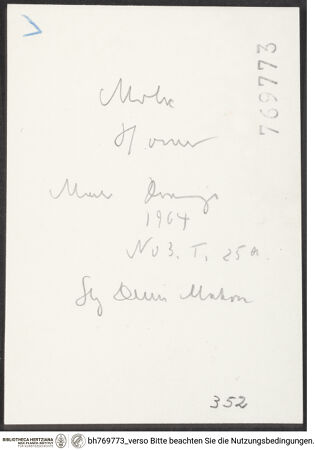 769773
Mola
Homer
Master Drawings
1964
No 3. T. 25a.
Slg Denis Mahon
352
BIBLIOTHECA HERTZIANA
MAX-PLANCK-INSTITUT
FÜR KUNSTGESCHICHTE
bh769773_verso Bitte beachten Sie die Nutzungsbedingungen.